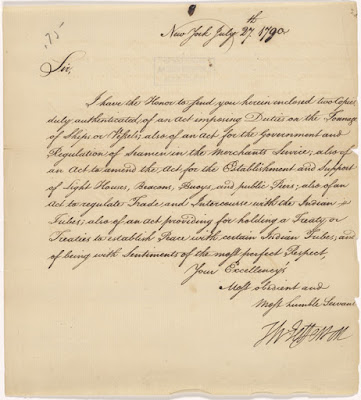 75
New York July 27.th 1790
Sir,
I have the Honor to send you herein enclosed two Copies
duly authenticated, of an Act imposing Duties on the Tonnage
of Ships or Vessels; also of an Act for the Government and
Regulation of Seamen in the Merchants Service; also of
an Act to amend the Act for the Establishment and Support
of Light Houses, Beacons, Buoys, and public Piers; also of an
Act to regulate Trade and Intercourse with the Indian
Tribes; also of an Act providing for holding a Treaty or
Treaties to establish Peace with certain Indian Tribes; and
of being with Sentiments of the most perfect Respect,
Your Excellency's
Most obedient and
Most humble Servant
Th: Jefferson